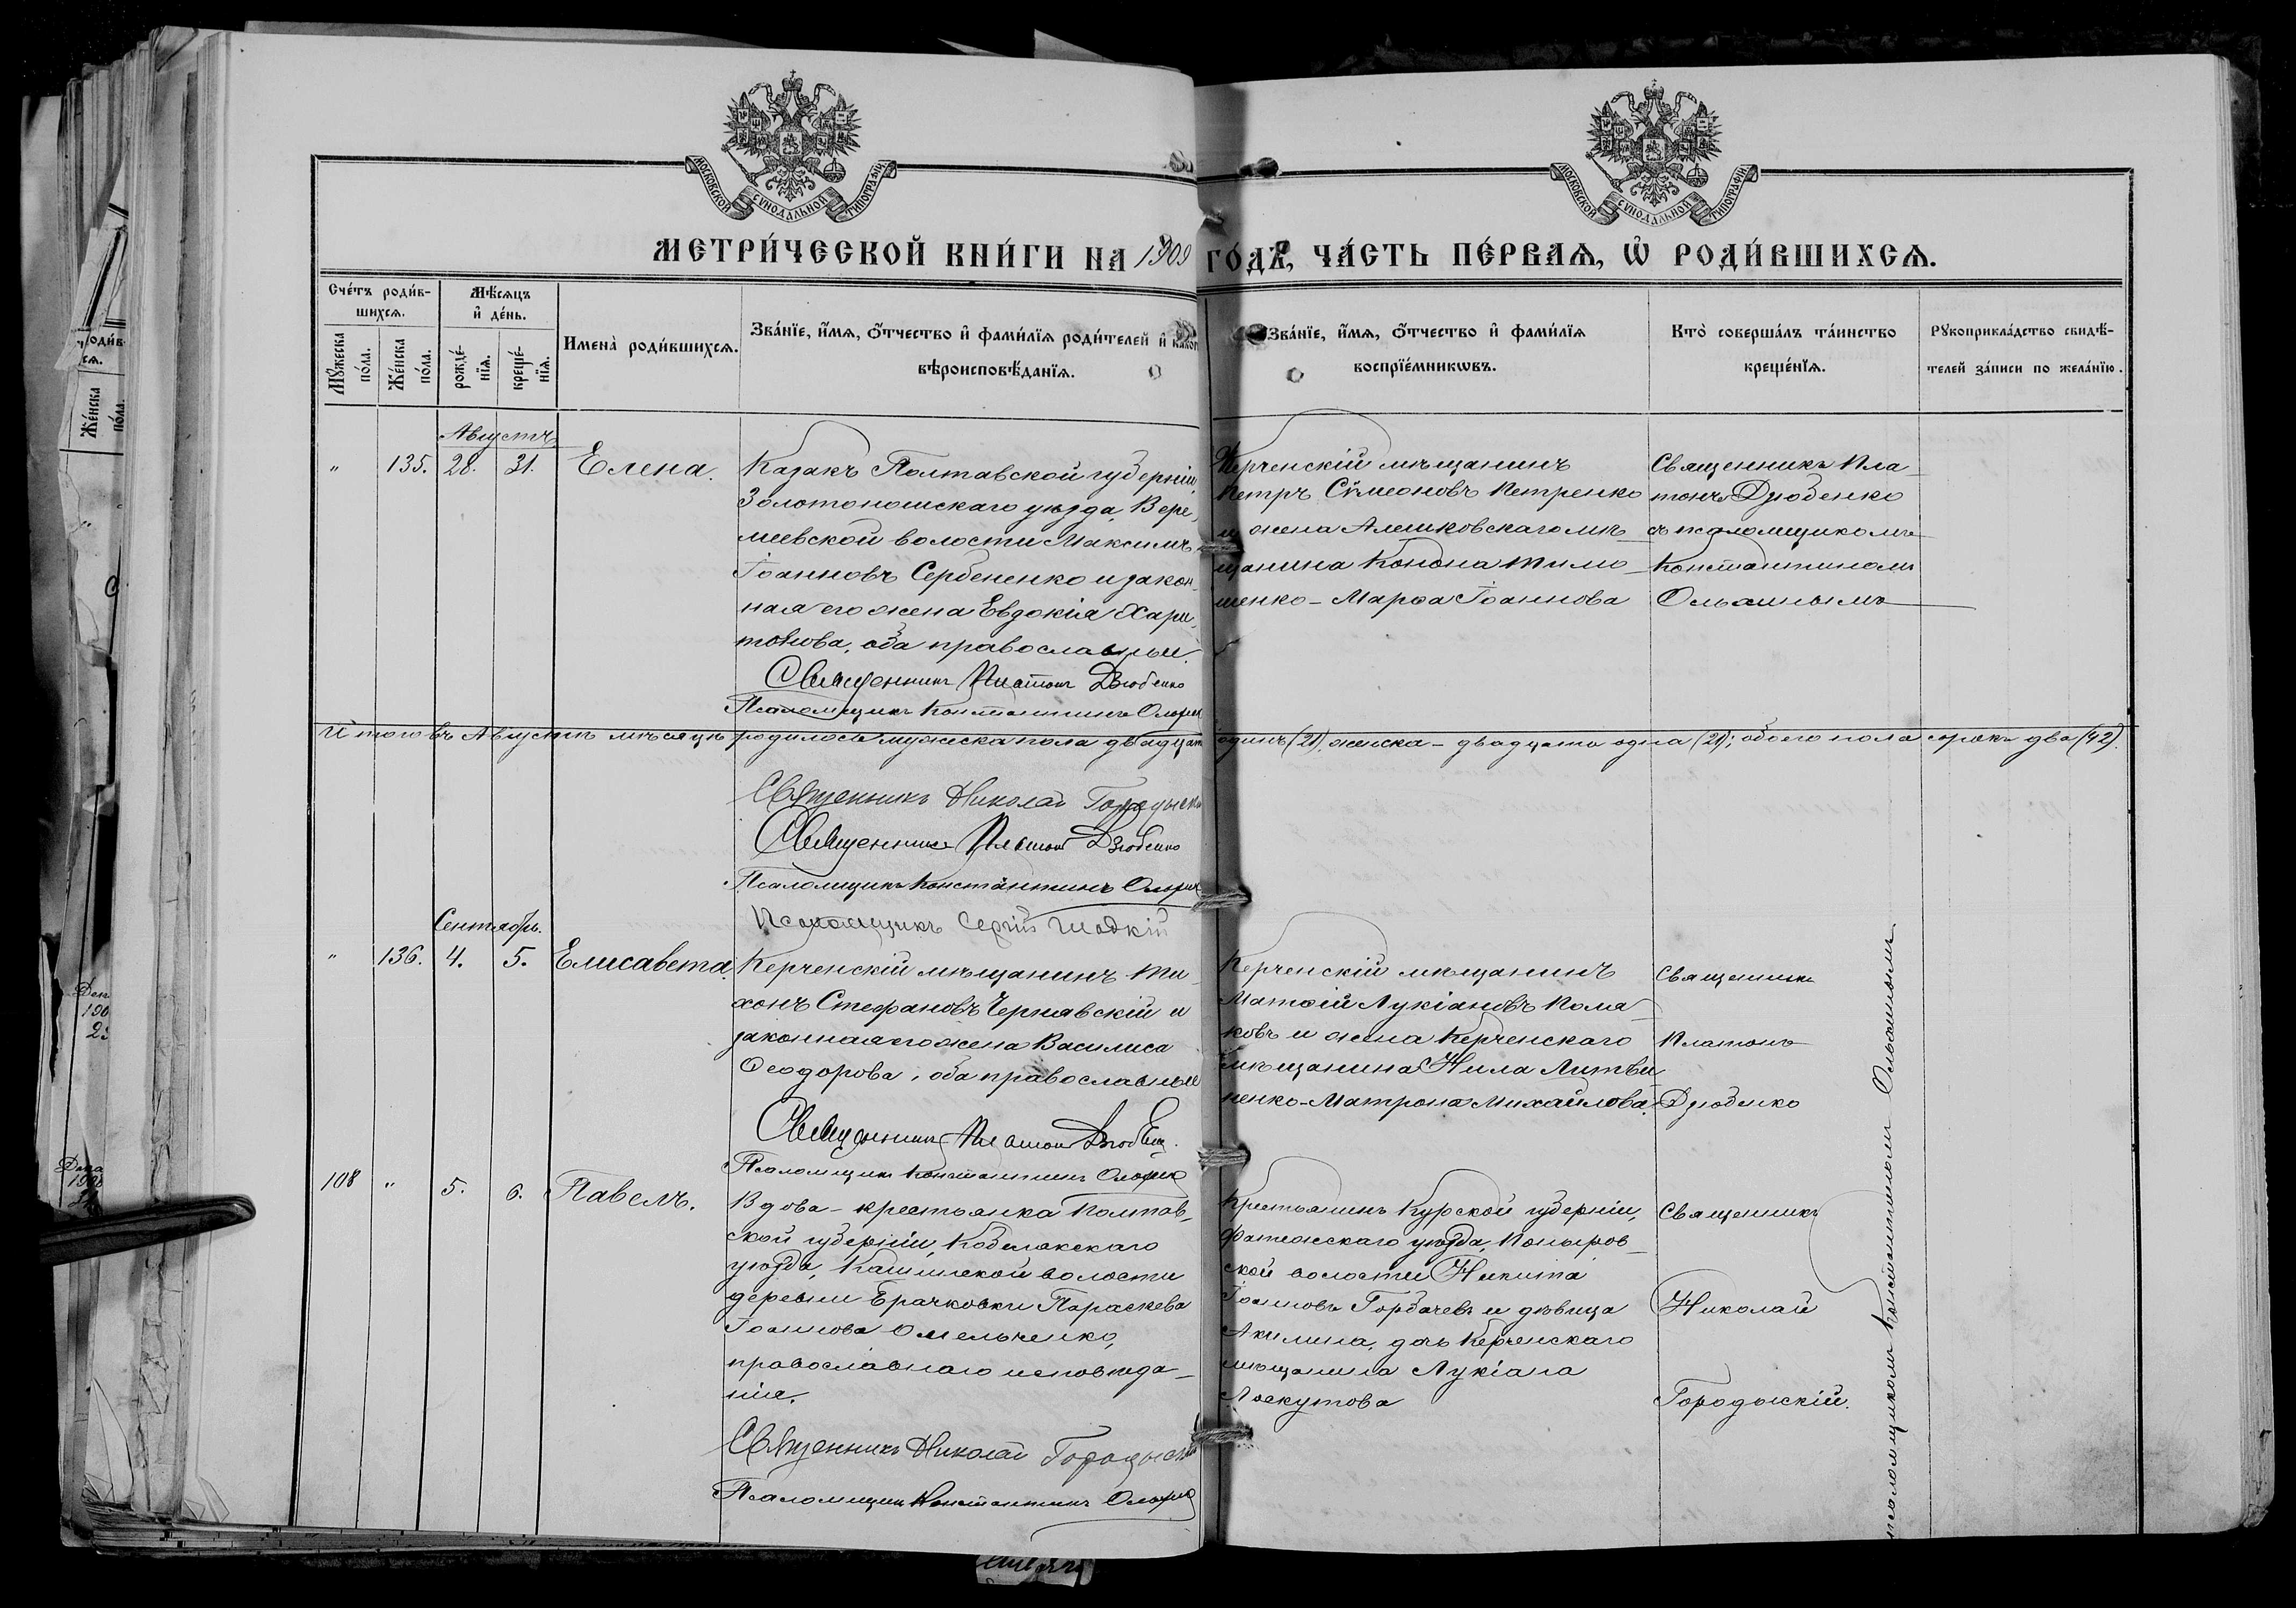 МОСКОВСКОЙ СѴНОДАЛЬНОЙ ТИПОГРАФІИ
МОСКОВСКОЙ СѴНОДАЛЬНОЙ ТИПОГРАФІИ
МЕТРИ́ЧЕСКОЙ КНИ́ГИ НА 1909 ГО́ДЪ, ЧА́СТЬ ПЕ́РВАѦ, Ѡ҆ РОДИ́ВШИХСѦ.
Сче́тъ роди́в-
шихсѧ.
Мꙋ́жеска
по́ла.
Же́нска
по́ла.
Мѣ́сѧцъ
и҆ де́нь.
рожде́-
нїѧ.
креще́-
нїѧ.
Имена̀ роди́вшихсѧ.
Зва́нїе, и҆́мѧ, ѻ҆́тчество и҆ фами́лїѧ роди́телей и҆
вѣроисповѣ́данїѧ.
Зва́нїе, и҆́мѧ, ѻ҆́тчество и҆ фами́лїѧ
воспрїе́мникѡвъ.
Кто̀ соверша́лъ та́инство
креще́нїѧ.
Рꙋкоприкла́дство свидѣ́-
телей за́писи по жела́нїю.
Августъ
" 135. 28. 31. Елена.
Казакъ Полтавской губерніи
Золотоношскаго уѣзда, Вере-
міевской волости Максимъ
Іоанновъ Сербененко и закон-
ная его жена Евдокія Хари-
тонова, оба православные.
Священникъ Платонъ Дзюбенко
Псаломщикъ Константинъ
Керченскій мѣщанинъ
Петръ Сѵмеоновъ Петренко
и жена Алешковскаго мѣ-
щанина Конона Тимо-
шенко - Марѳа Іоаннова
Священникъ Пла-
тонъ Дзюбенко
съ псаломщикомъ
Константиномъ
Итого въ Августѣ мѣсяцѣ родилось мужеска пола двадцать одинъ (21), женска - двадцать одна (21); обоего пола сорокъ два (42).
Священникъ Николай Городыскій
Священникъ Платонъ Дзюбенко
Псаломщикъ Константинъ
Псаломщикъ Сергій
Сентябрь.
" 136. 4. 5. Елисавета.
Керченскій мѣщанинъ Ти-
хонъ Стефановъ Чернявскій и
законная его жена Василиса
Ѳеодорова, оба православные
Священникъ Платонъ Дзюбенко
Псаломщикъ Константинъ
Керченскій мѣщанинъ
Матѳій Лукіановъ Поля-
ковъ и жена Керченскаго
мѣщанина Нила Литви-
ненко - Матрона Михайлова.
Священникъ
Платонъ
Дзюбенко
108 " 5. 6. Павелъ.
Вдова - крестьянка Полтав-
ской губерніи, Кобелякскаго
уѣзда, волости
деревни Параскева
Іоаннова Омельченко,
православнаго исповѣда-
нія.
Священникъ Николай Городыскій
Псаломщикъ Константинъ
Крестьянинъ Курской губерніи,
Фатежскаго уѣзда, Поныров-
ской волости Никита
Іоанновъ Горбачевъ и дѣвица
Акилина, дочь Керченскаго
мѣщанина Лукіана
Лоскутова
Священникъ
Николай
Городыскій.
псаломщикомъ Константиномъ